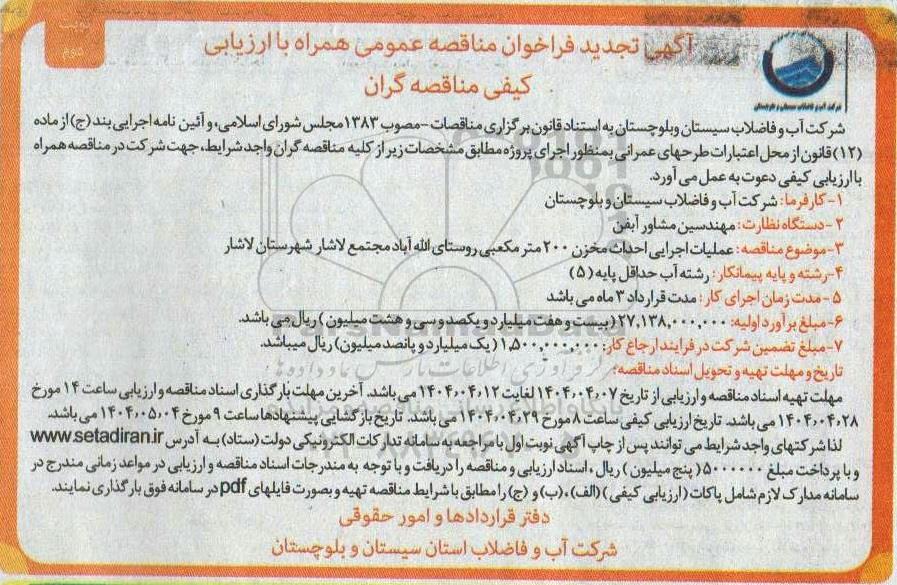 نوبت
دوم
آگهی تجدید فراخوان مناقصه عمومی همراه با ارزیابی
کیفی مناقصه گران
شرکت آب و فاضلاب سیستان و بلوچستان
شرکت آب و فاضلاب سیستان وبلوچستان به استناد قانون برگزاری مناقصات -مصوب ۱۳۸۳ مجلس شورای اسلامی، و آئین نامه اجرایی بند (ج) از ماده
(۱۲) قانون از محل اعتبارات طرحهای عمرانی بمنظور اجرای پروژه مطابق مشخصات زیر از کلیه مناقصه گران واجد شرایط، جهت شرکت در مناقصه همراه
با ارزیابی کیفی دعوت به عمل می آورد.
۱-کارفرما: شرکت آب و فاضلاب سیستان و بلوچستان
۲-دستگاه نظارت: مهندسین مشاور آبفن
۳-موضوع مناقصه: عملیات اجرایی احداث مخزن ۲۰۰ متر مکعبی روستای الله آباد مجتمع لاشار شهرستان لاشار
۴-رشته و پایه پیمانکار: رشته آب حداقل پایه (۵)
۵-مدت زمان اجرای کار: مدت قرارداد ۳ ماه می باشد
۶-مبلغ برآورد اولیه: ۲۷,۱۳۸,۰۰۰,۰۰۰ (بیست و هفت میلیارد و یکصد و سی و هشت میلیون) ریال می باشد.
۷-مبلغ تضمین شرکت در فرایند ارجاع کار: ۱,۵۰۰,۰۰۰,۰۰۰ (یک میلیارد و پانصد میلیون) ریال میباشد.
تاریخ و مهلت تهیه و تحویل اسناد مناقصه:
مهلت تهیه اسناد مناقصه و ارزیابی از تاریخ ۱۴۰۴،۰۴،۰۷ لغایت ۱۴۰۴،۰۴،۱۲ می باشد. آخرین مهلت بارگذاری اسناد مناقصه و ارزیابی ساعت ۱۴ مورخ
۱۴۰۴،۰۴،۲۸ می باشد. تاریخ ارزیابی کیفی ساعت ۸ مورخ ۱۴۰۴،۰۴،۲۹ می باشد. تاریخ بازگشایی پیشنهادها ساعت ۹ مورخ ۱۴۰۴،۰۵،۰۴ می باشد.
لذا شرکتهای واجد شرایط می توانند پس از چاپ آگهی نوبت اول با مراجعه به سامانه تدارکات الکترونیکی دولت (ستاد) به آدرس www.setadiran.ir
و با پرداخت مبلغ ۵۰۰۰۰۰۰ (پنج میلیون) ریال، اسناد ارزیابی و مناقصه را دریافت و با توجه به مندرجات اسناد مناقصه و ارزیابی در مواعد زمانی مندرج در
سامانه مدارک لازم شامل پاکات (ارزیابی کیفی) (الف)، (ب) و (ج) را مطابق با شرایط مناقصه تهیه و بصورت فایلهای pdf در سامانه فوق بارگذاری نمایند.
دفتر قراردادها و امور حقوقی
شرکت آب و فاضلاب استان سیستان و بلوچستان